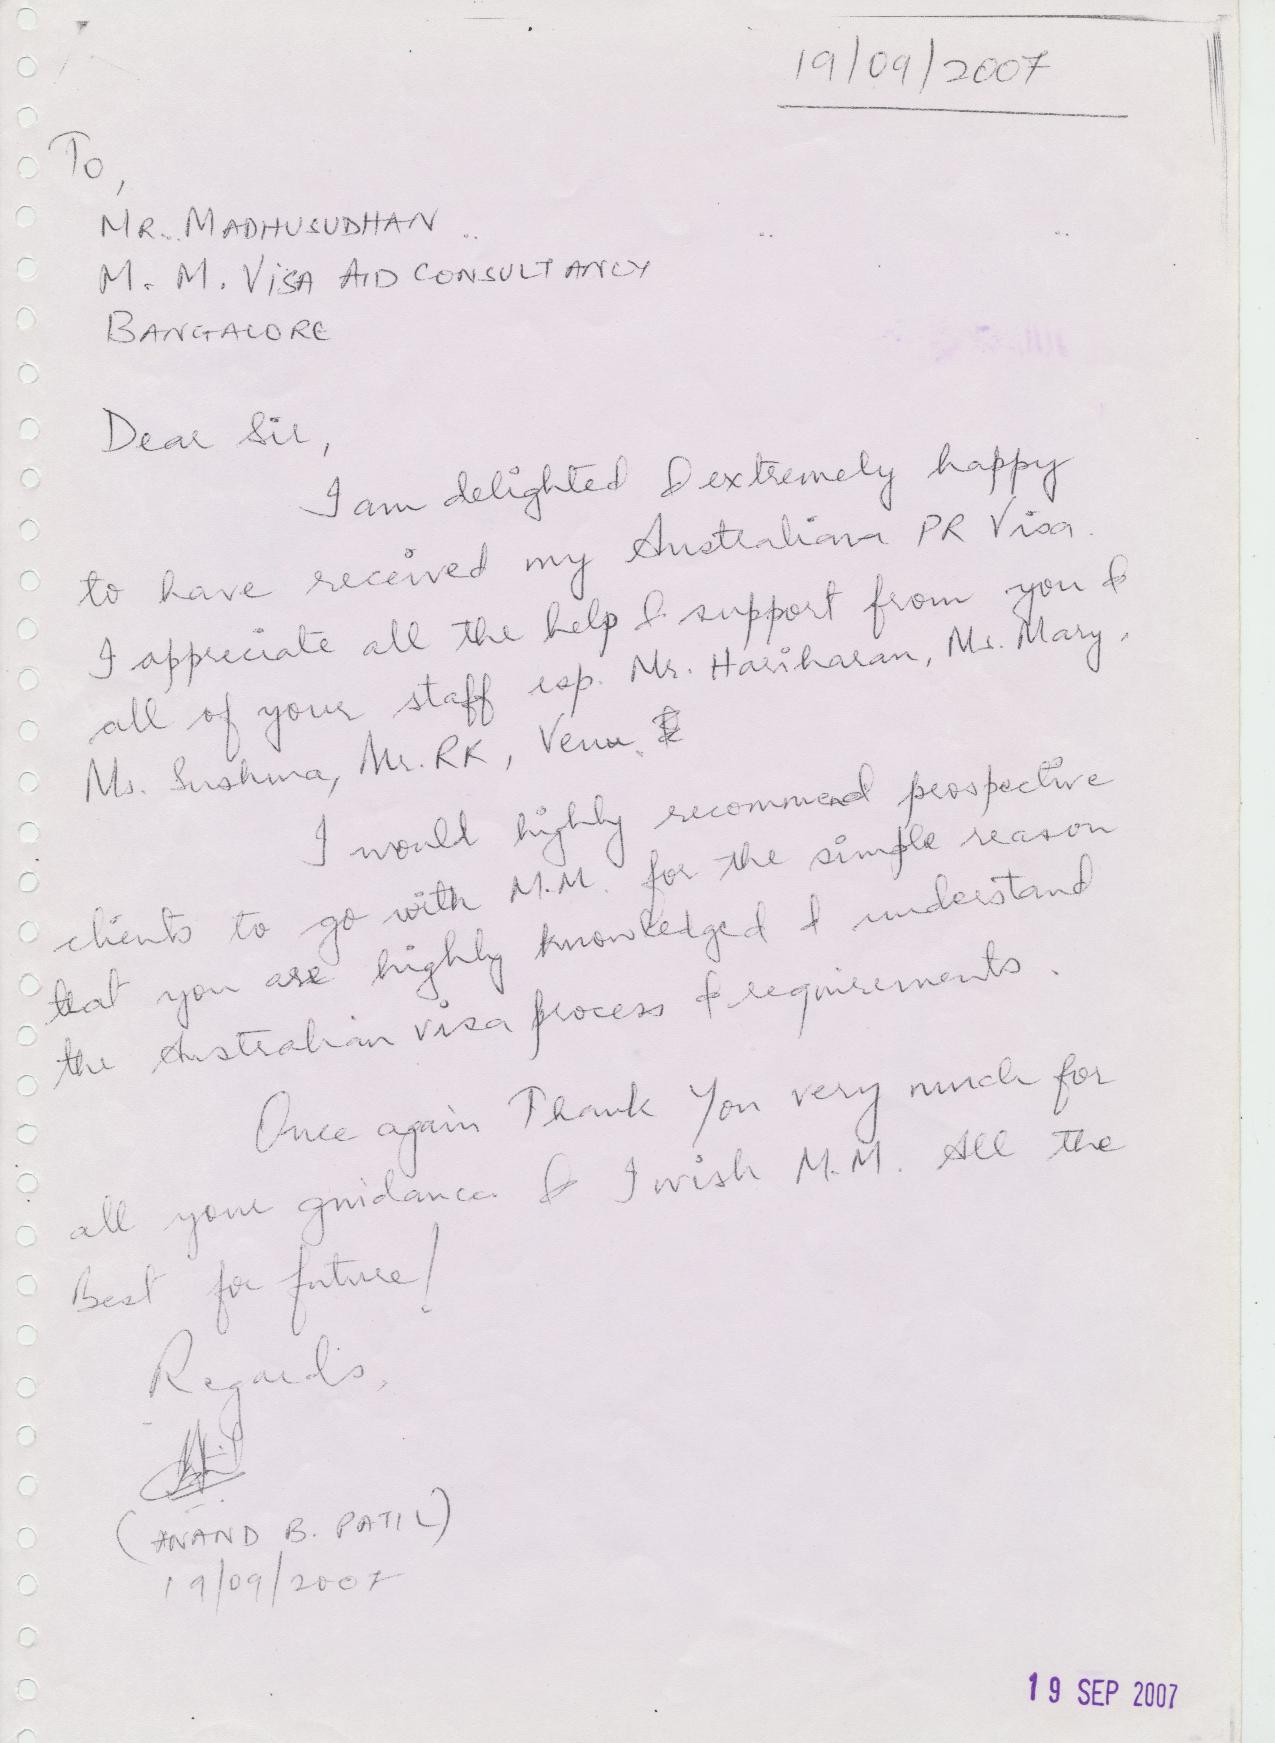 19/09/2007
To,
MR. MADHUSUDHAN
M. M. VISA AID CONSULTANCY
BANGALORE
Dear Sir,
I am delighted & extremely happy
to have received my Australian PR Visa.
I appreciate all the help & support from you &
all of your staff esp. Mr. Hariharan, Ms. Mary,
Ms. Sushma, Mr. RK, Venu.
I would highly recommend prospective
clients to go with M.M. for the simple reason
that you are highly knowledged & understand
the Australian visa process & requirements.
Once again Thank You very much for
all your guidance & I wish M.M. All the
Best for future!
Regards,
(ANAND B. PATIL)
19/09/2007
19 SEP 2007